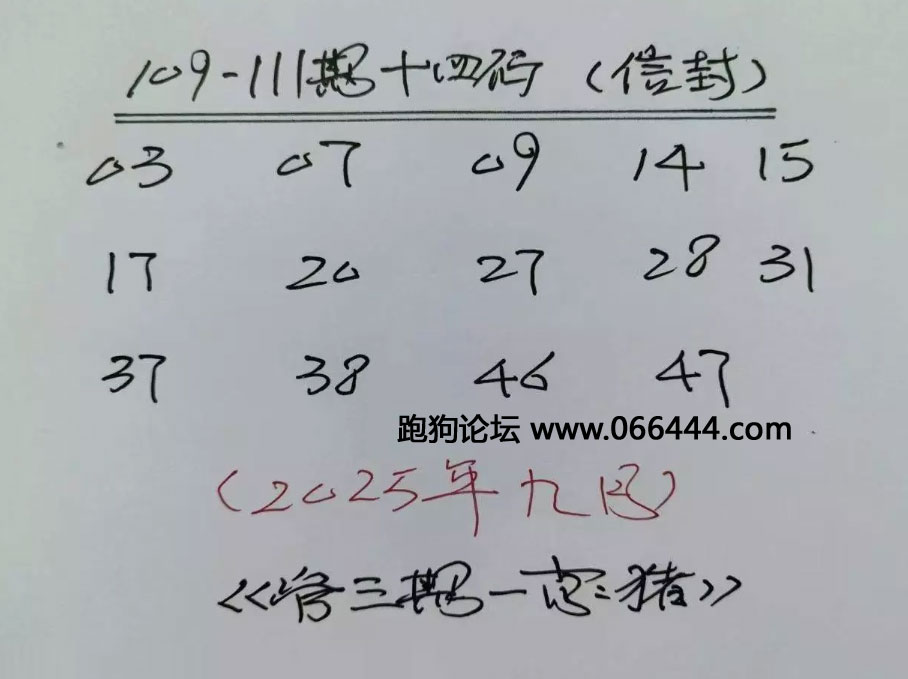 109-111期十四码（信封）
03 07 09 14 15
17 20 27 28 31
37 38 46 47
跑狗论坛 www.066444.com
（2025年九尾）
《管三期一亮:猪》